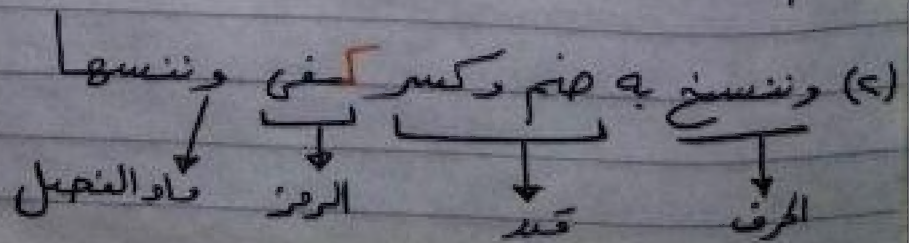 (٢) وننسخ به ضم وكسر كفى وننسها
الحرف قيد الرمز واو الفيصل